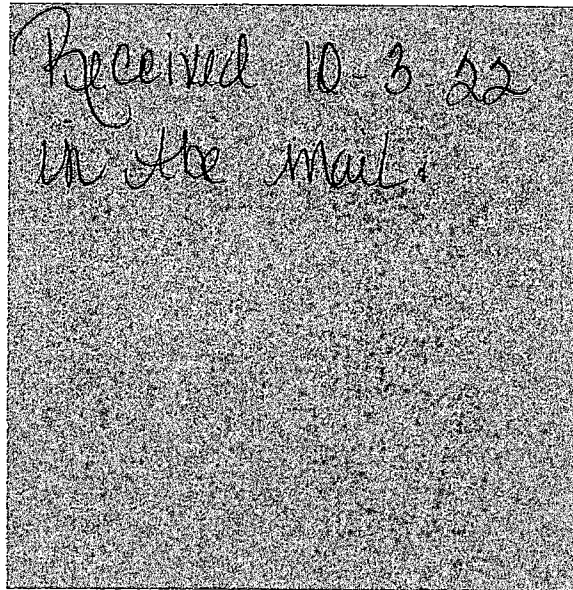 Received 10-3-22
in the mail.